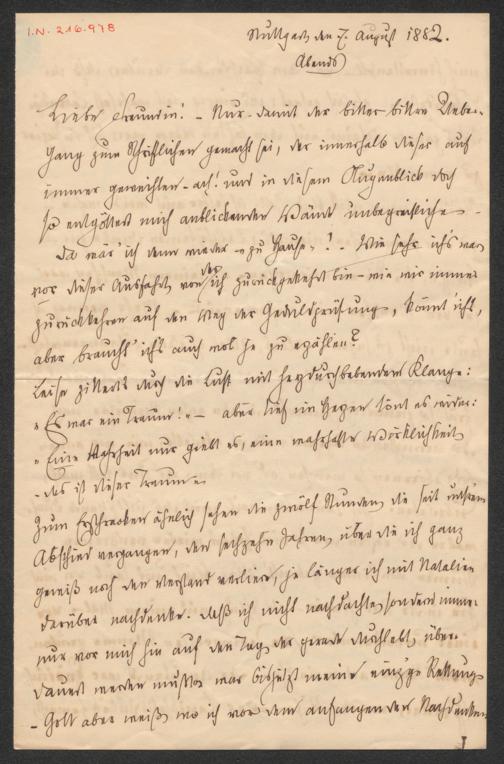 I.N. 216.978
Stuttgart den 7. August 1882.
Abends
Liebe Freundin! – Nur damit der bitter bittre Ueber-
gang zum Schriftlichen gemacht sei, der innerhalb dieser auf
immer geweihten – ach! und in diesem Augenblick doch
so entgöttert mich anblickenden Wände unbegreifliche –
Da wär' ich denn wieder „zu Hause"! – Wie sehr ich's war
vor dieser Ausfahrt, von der ich zurückgekehrt bin – wie wir immer
zurückkehren auf den Weg der Geduldprüfung, könnt' ich's,
aber braucht' ich's auch wol je zu erzählen?
Leise zittert's durch die Luft mit herzdurchbebendem Klange:
„Es war ein Traum!" – aber tief im Herzen tönt es wider:
„Eine Wahrheit nur giebt es, eine wahrhafte Wirklichkeit
– das ist dieser Traum"
Zum Erschrecken ähnlich sehen die zwölf Stunden, die seit unserm
Abschied vergangen, den sechzehn Jahren, über die ich ganz
gewiß noch den Verstand verliere, je länger ich mit Natalien
darüber nachdenke. Daß ich nicht nachdachte, sondern immer
nur vor mich hin auf den Tag, der gerade durchlebt, über-
dauert werden mußte, war bis jetzt meine einz'ge Rettung
– Gott aber weiß, wo ich vor dem anfangenden Nachdenken